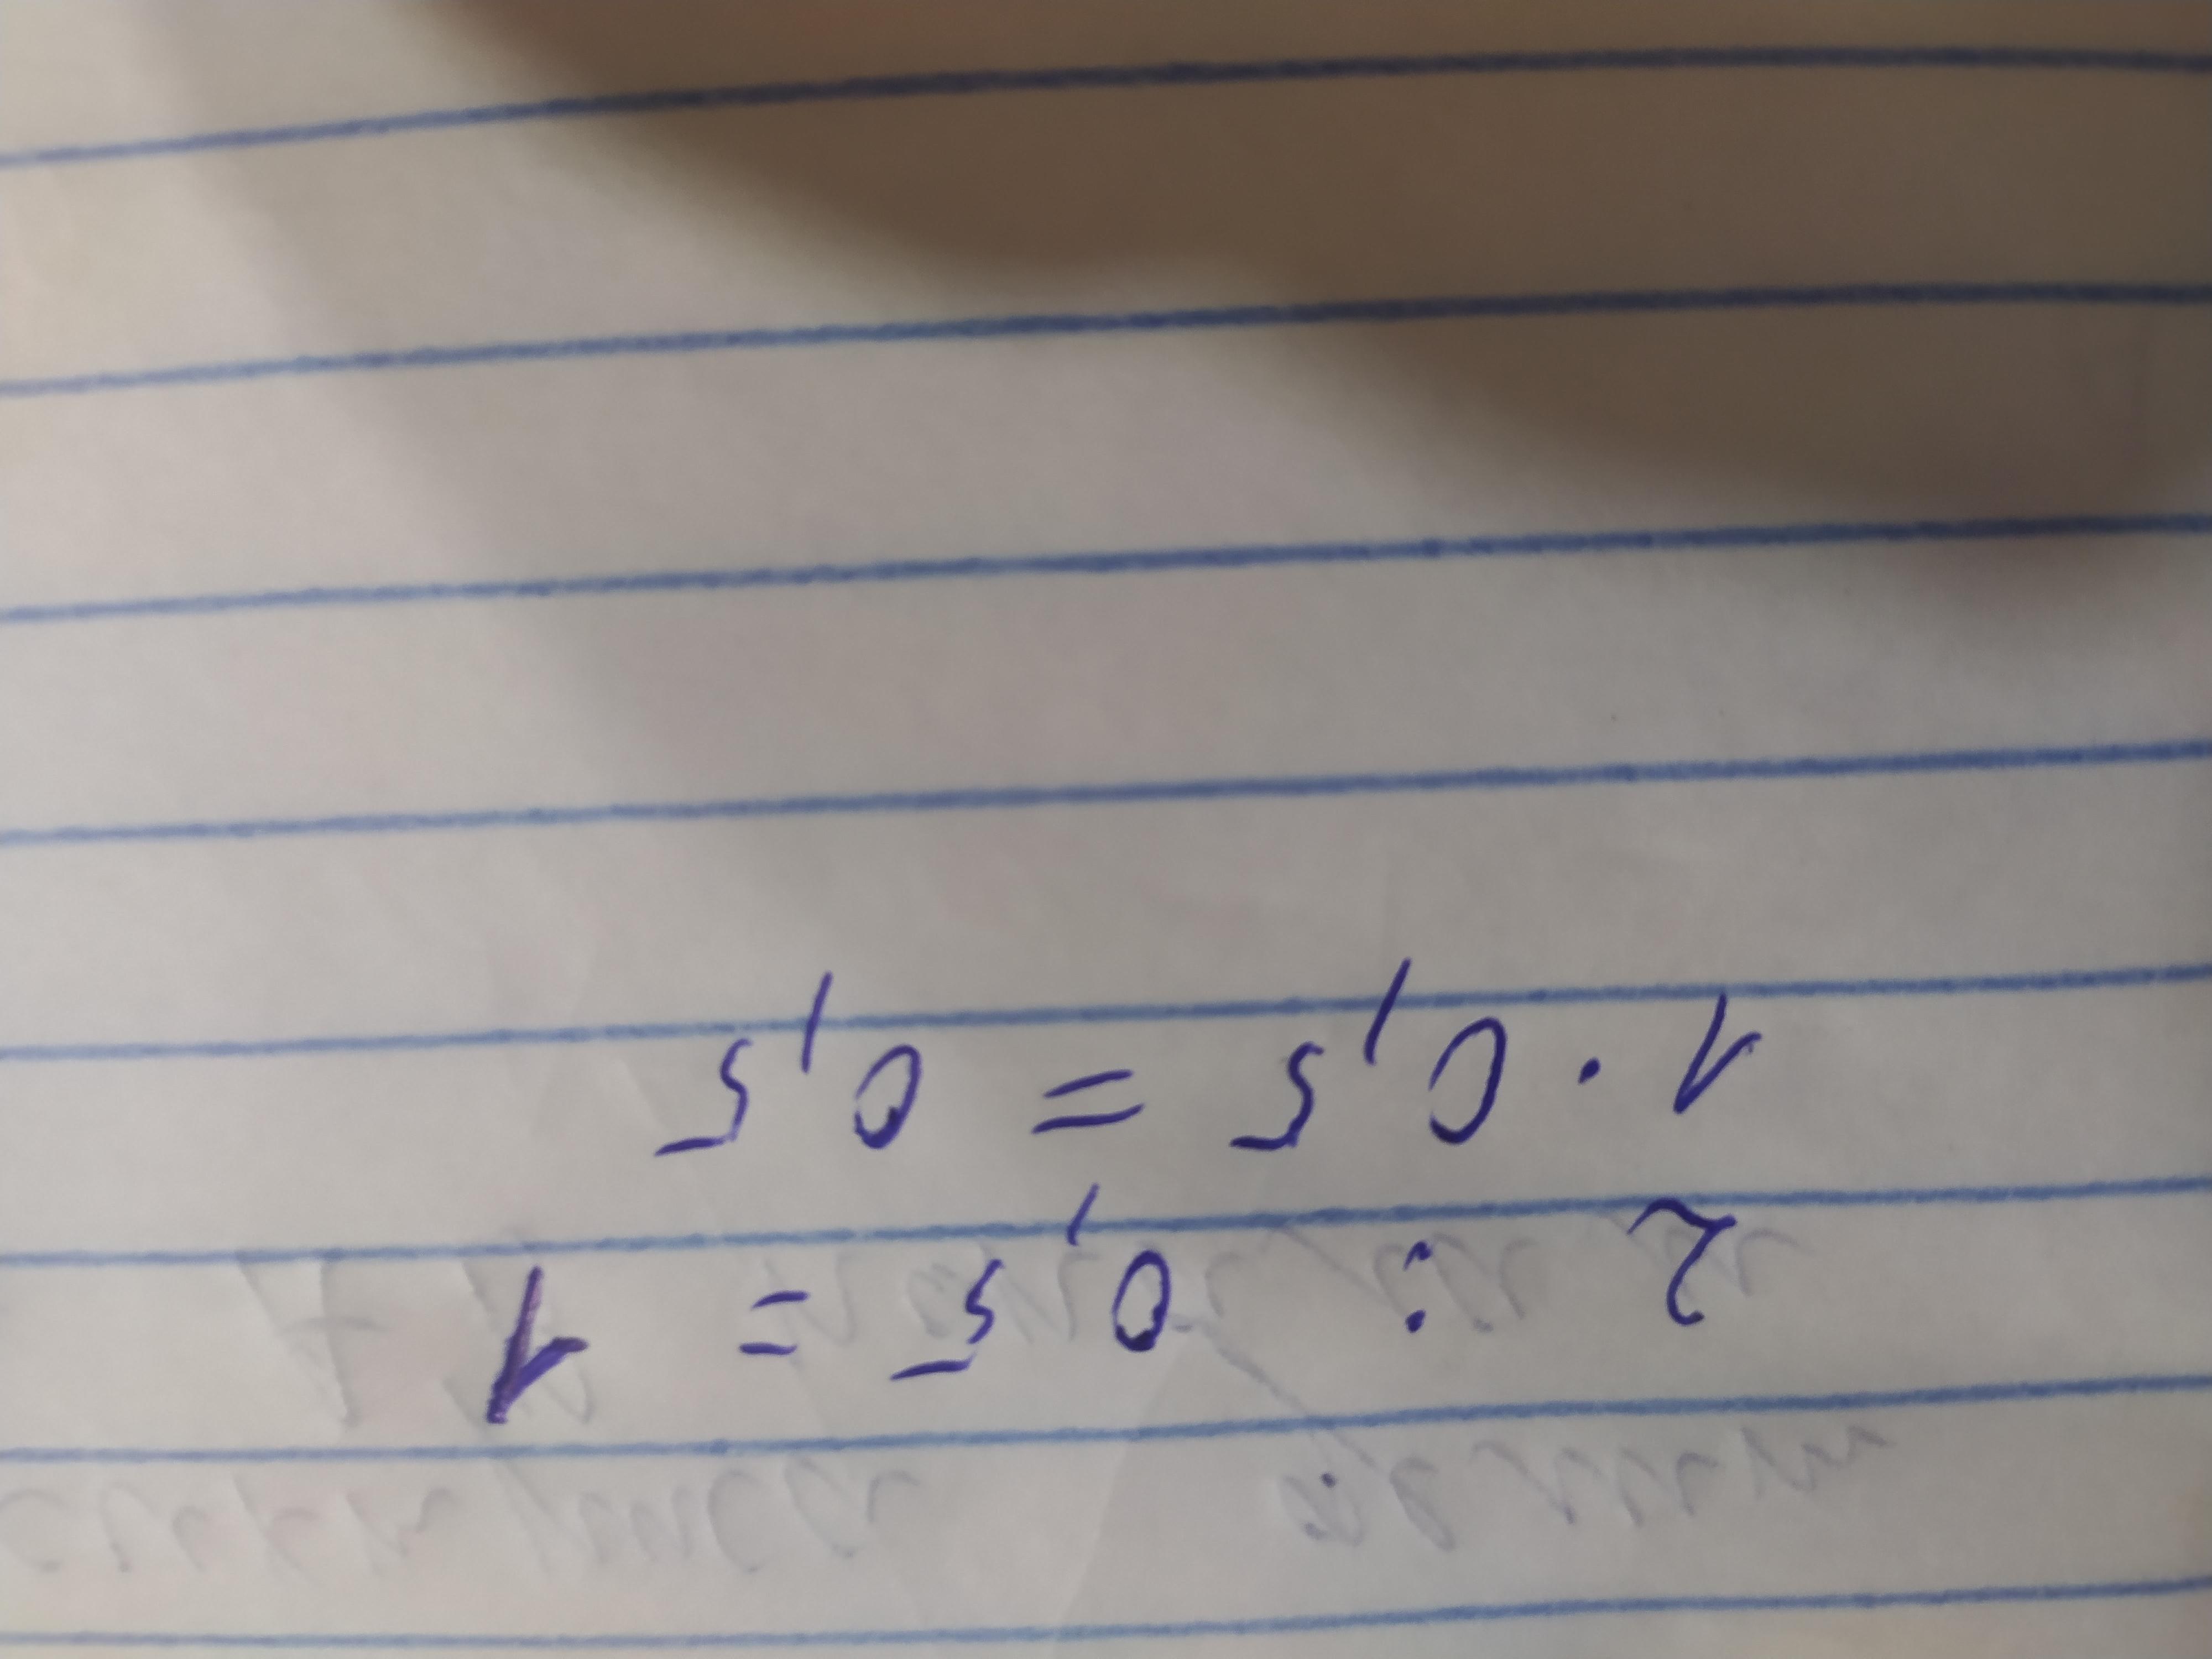 2 : 0,5 = 1
1 · 0,5 = 0,5